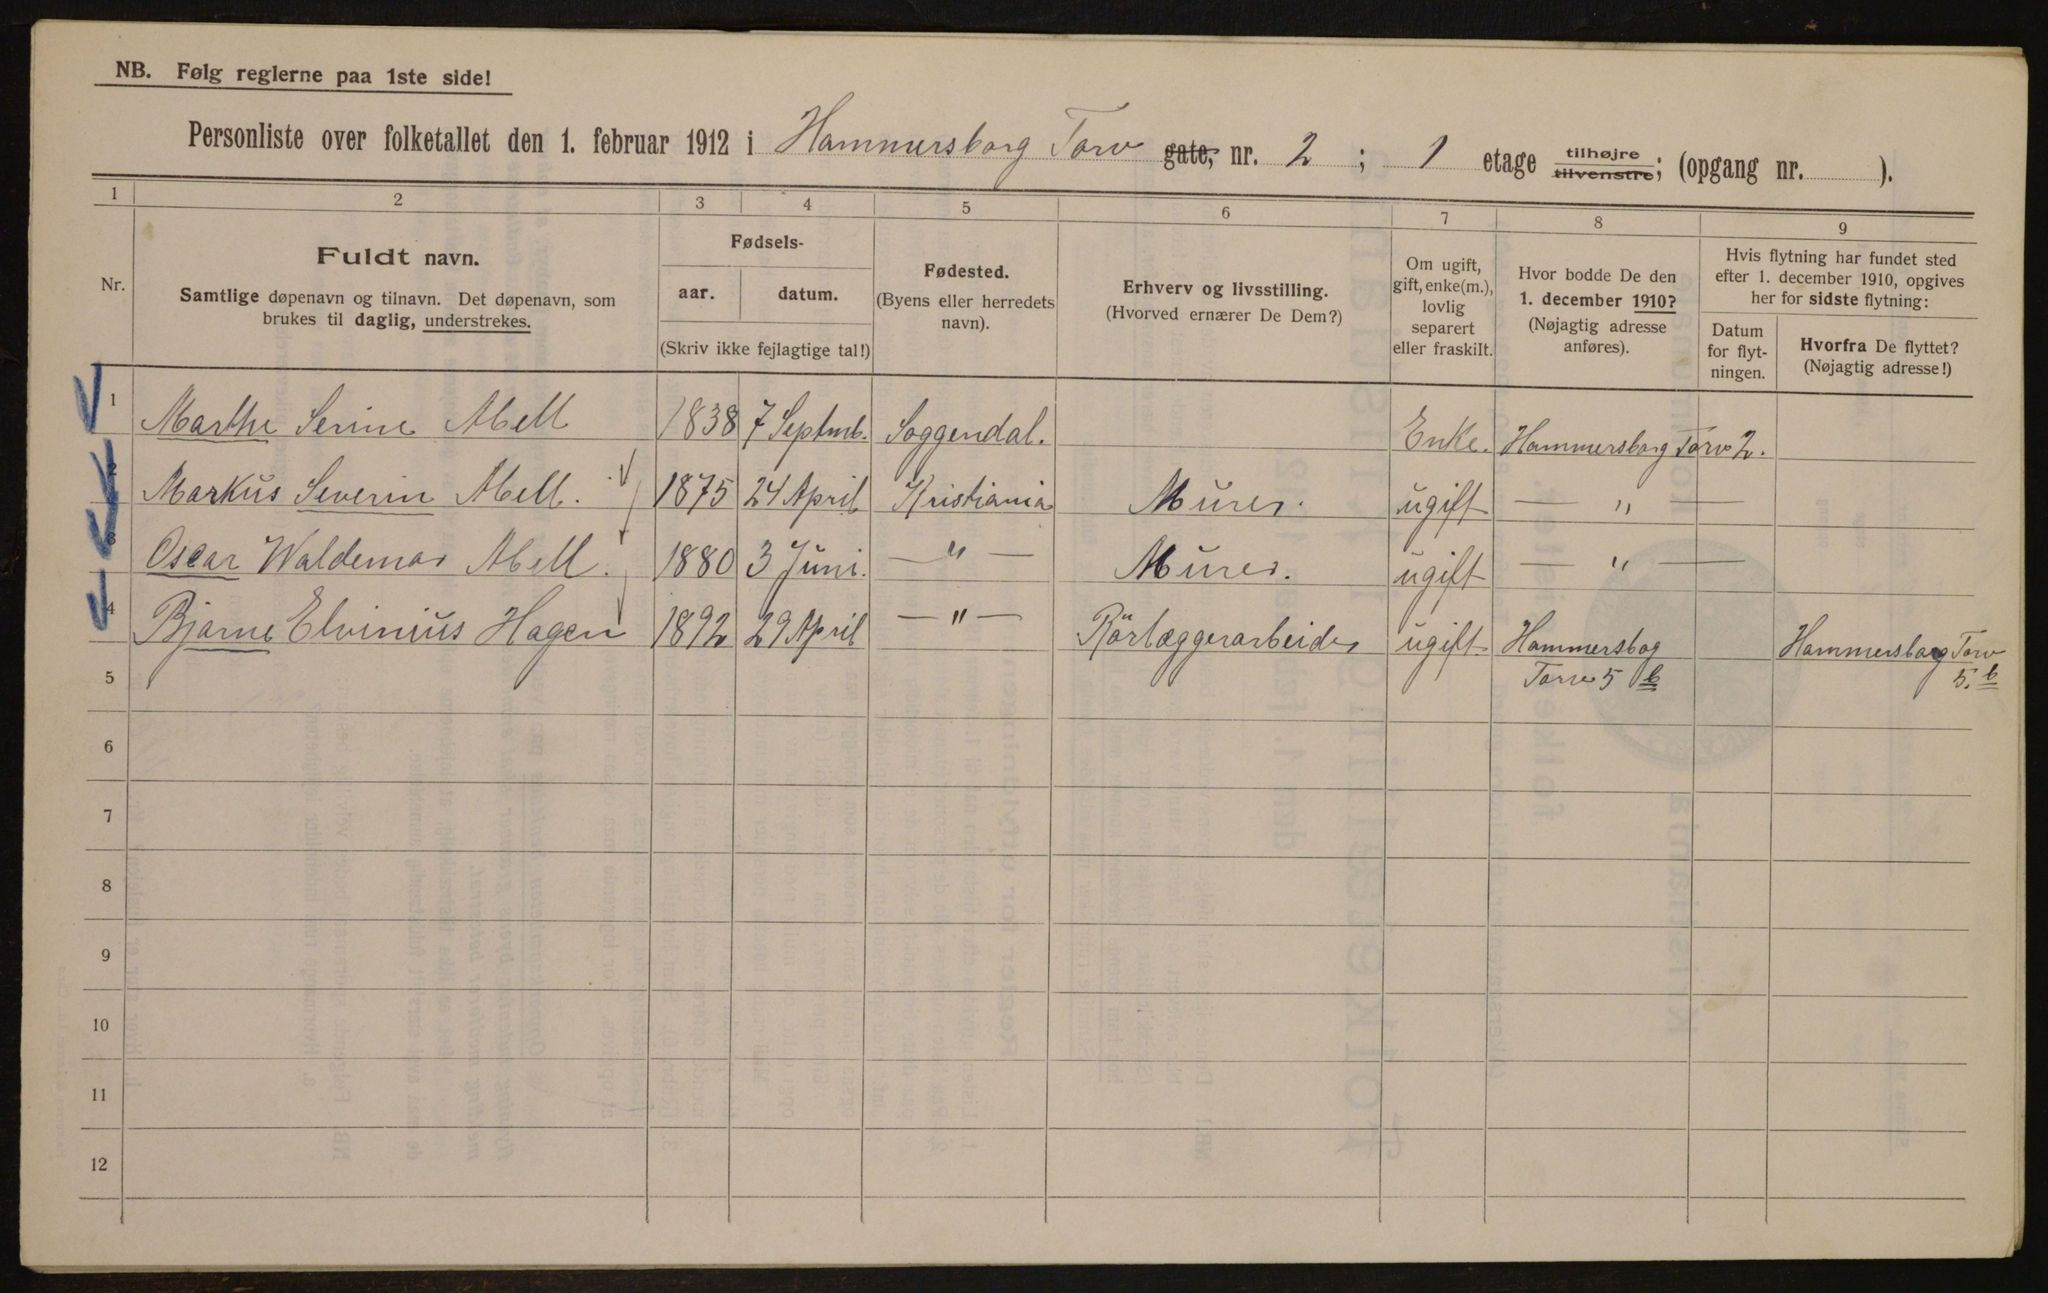 NB. Følg reglerne paa 1ste side!
Personliste over folketallet den 1. februar 1912 i Hammersborg Torv gate, nr. 2 ; 1 etage tilhøjre tilvenstre; (opgang nr. ).
1 2 3 4 5 6 7 8 9
Nr.
Fuldt navn.
Samtlige døpenavn og tilnavn. Det døpenavn, som
brukes til daglig, understrekes.
Fødsels-
aar. datum.
(Skriv ikke fejlagtige tal!)
Fødested.
(Byens eller herredets
navn).
Erhverv og livsstilling.
(Hvorved ernærer De Dem?)
Om ugift,
gift, enke(m.),
lovlig
separert
eller fraskilt.
Hvor bodde De den
1. december 1910?
(Nøjagtig adresse
anføres).
Hvis flytning har fundet sted
efter 1. december 1910, opgives
her for sidste flytning:
Datum
for flyt-
ningen.
Hvorfra De flyttet?
(Nøjagtig adresse!)
1 Marthe Serine Abell 1838 7 Septmb. Soggendal. Enke. Hammersborg Torv 2.
2 Markus Severin Abell. 1875 24 April Kristiania Murer. ugift — " —
3 Oscar Waldemar Abell. 1880 3 Juni. — " — Murer. ugift — " —
4 Bjarne Elvinius Hagen 1892 29 April — " — Rörlæggerarbeider ugift Hammersbog Hammersborg Torv
5 Torv 5 b 5. b
6
7
8
9
10
11
12